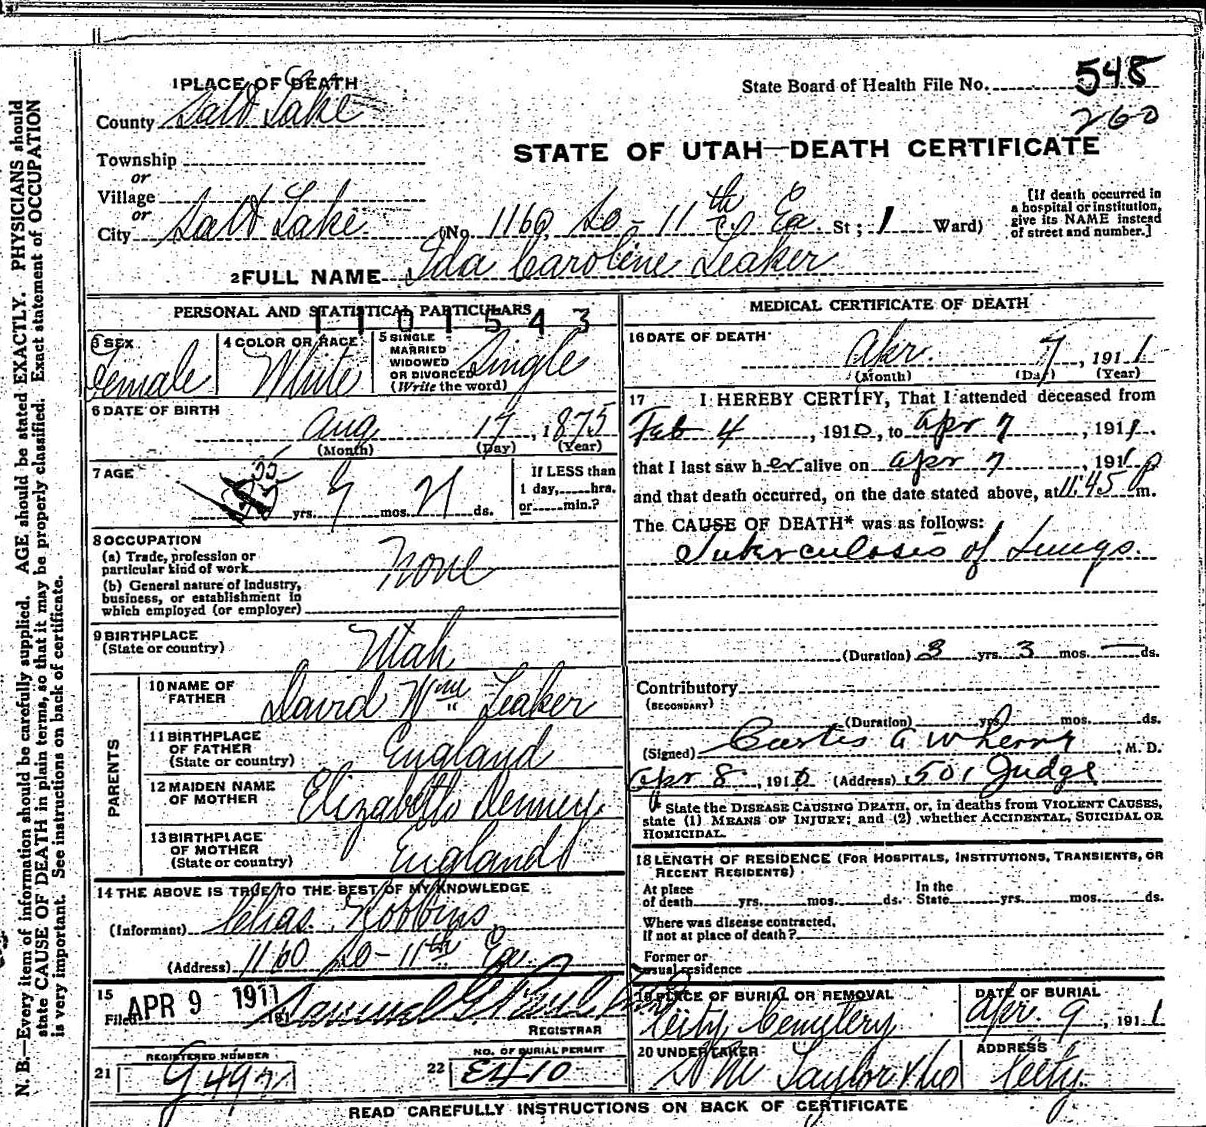 1 PLACE OF DEATH
State Board of Health File No. 548
260
County Salt Lake
STATE OF UTAH—DEATH CERTIFICATE
Township
or
Village
or
City Salt Lake (No. 1160 So - 11th Ea. St; 1 Ward)
[If death occurred in
a hospital or institution,
give its NAME instead
of street and number.]
2 FULL NAME Ida Caroline Leaker
PERSONAL AND STATISTICAL PARTICULARS
1101543
3 SEX
Female
4 COLOR OR RACE
White
5 SINGLE
MARRIED
WIDOWED
OR DIVORCED
(Write the word)
Single
6 DATE OF BIRTH
Aug 17, 1875
(Month) (Day) (Year)
7 AGE
35 yrs. 7 mos. 21 ds.
If LESS than
1 day, hrs.
or min.?
8 OCCUPATION
(a) Trade, profession or
particular kind of work
None
(b) General nature of industry,
business, or establishment in
which employed (or employer)
9 BIRTHPLACE
(State or country)
Utah
PARENTS
10 NAME OF
FATHER
David Wm Leaker
11 BIRTHPLACE
OF FATHER
(State or country)
England
12 MAIDEN NAME
OF MOTHER
Elizabeth Denney
13 BIRTHPLACE
OF MOTHER
(State or country)
England
14 THE ABOVE IS TRUE TO THE BEST OF MY KNOWLEDGE
(Informant) Chas. Robbins
(Address) 1160 So - 11th Ea.
15
Filed APR 9 1911 191
Samuel G. Paul
REGISTRAR
21 REGISTERED NUMBER
22 NO. OF BURIAL PERMIT
E410
MEDICAL CERTIFICATE OF DEATH
16 DATE OF DEATH
Apr. 7, 1911
(Month) (Day) (Year)
17 I HEREBY CERTIFY, That I attended deceased from
Feb 4, 1910, to Apr 7, 1911.
that I last saw her alive on Apr 7, 191
and that death occurred, on the date stated above, at 11:45 P m.
The CAUSE OF DEATH* was as follows:
Tuberculosis of Lungs.
(Duration) 3 yrs. 3 mos. — ds.
Contributory
(SECONDARY)
(Duration) yrs. mos. ds.
(Signed) Curtis A Wherry, M. D.
Apr 8, 191 (Address) 501 Judge
State the DISEASE CAUSING DEATH, or, in deaths from VIOLENT CAUSES,
state (1) MEANS OF INJURY; and (2) whether ACCIDENTAL, SUICIDAL OR
HOMICIDAL.
18 LENGTH OF RESIDENCE (FOR HOSPITALS, INSTITUTIONS, TRANSIENTS, OR
RECENT RESIDENTS)
At place
of death yrs. mos. ds.
In the
State yrs. mos. ds.
Where was disease contracted,
If not at place of death?
Former or
usual residence
19 PLACE OF BURIAL OR REMOVAL
City Cemetery
DATE OF BURIAL
Apr. 9, 1911
20 UNDERTAKER
S M Taylor & Co
ADDRESS
City
READ CAREFULLY INSTRUCTIONS ON BACK OF CERTIFICATE
N. B.—Every item of information should be carefully supplied. AGE should be stated EXACTLY. PHYSICIANS should
state CAUSE OF DEATH in plain terms, so that it may be properly classified. Exact statement of OCCUPATION
is very important. See instructions on back of certificate.